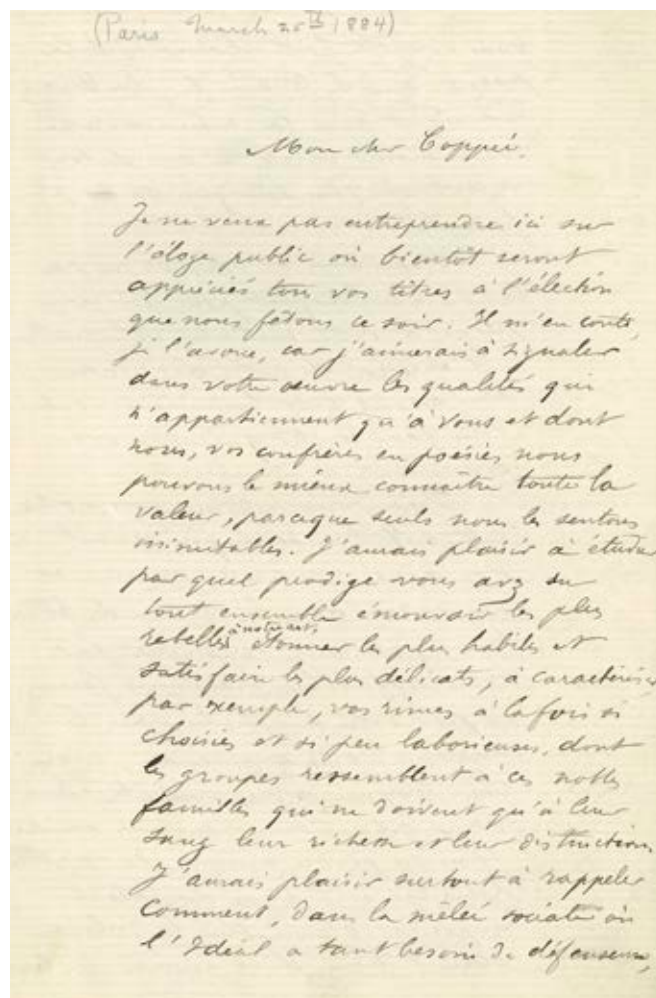 (Paris March 20th 1884)
Mon cher Coppée,
Je ne veux pas entreprendre ici sur
l'éloge public où bientôt seront
appréciés tous vos titres à l'élection
que nous fêtons ce soir. Il m'en coûte,
je l'avoue, car j'aimerais à signaler
dans votre œuvre les qualités qui
n'appartiennent qu'à vous et dont
nous, vos confrères en poésies nous
pouvons le mieux connaître toute la
valeur, parceque seuls nous les sentons
inimitables. J'aurais plaisir à étudier
par quel prodige vous avez su
tout ensemble émouvoir les plus
rebelles à notre art, étonner les plus habiles et
satisfaire les plus délicats, à caractériser
par exemple, vos rimes à la fois si
choisies et si peu laborieuses, dont
les groupes ressemblent à ces nobles
familles qui ne doivent qu'à leur
sang leur richesse et leur distinction.
J'aurais plaisir surtout à rappeler
comment, dans la mêlée sociale où
l'Idéal a tant besoin de défenseurs,